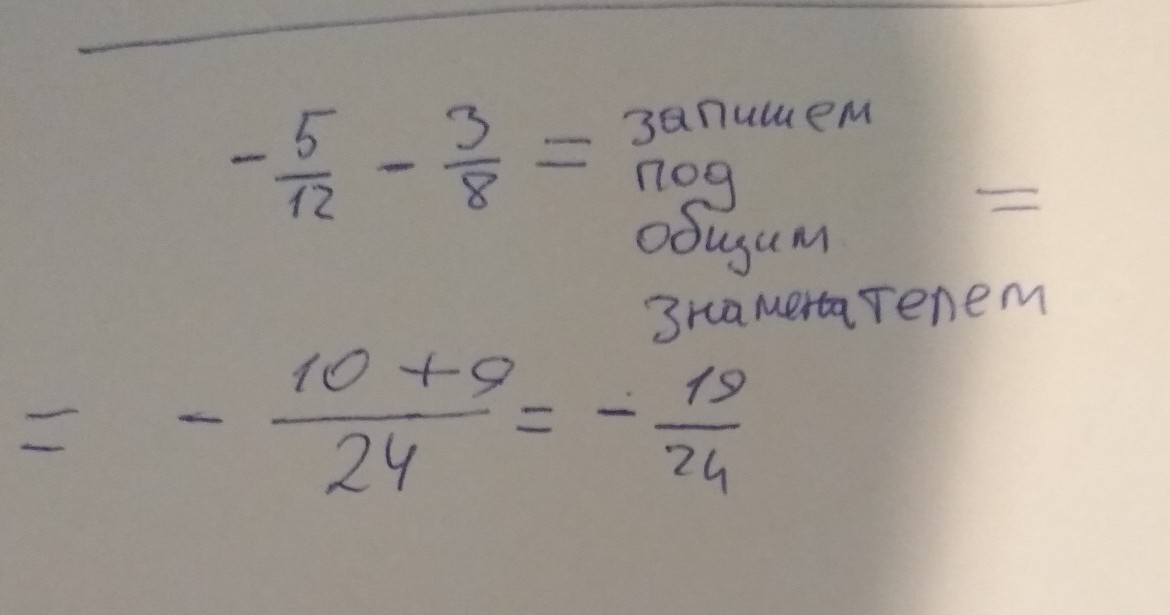 - 5/12 - 3/8 = запишем
под
общим =
знаменателем
= - 10 + 9/24 = - 19/24